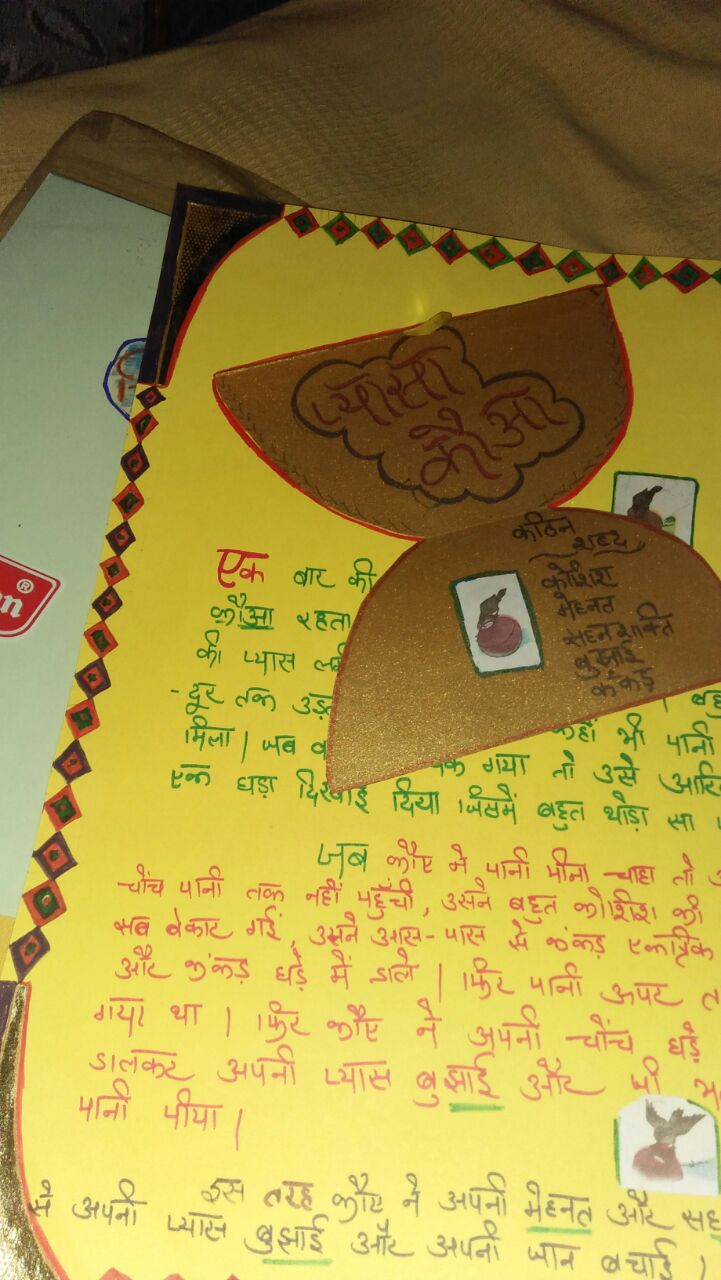 प्यासा
कौआ
कठिन
शब्द
कोशिश
मेहनत
सहनशक्ति
बुझाई
कंकड़
एक बार की
कौआ रहता
की प्यास
दूर तक
मिला। जब कहीं भी पानी
गया तो उसे
एक घड़ा दिखाई दिया जिसमें बहुत थोड़ा सा
जब कौए ने पानी पीना चाहा तो
चोंच पानी तक नहीं पहुँची, उसने बहुत कोशिश की
सब बेकार गई, उसने आस-पास से कंकड़ एकत्रित
और कंकड़ घड़े में डाले। फिर पानी ऊपर
गया था। फिर कौए ने अपनी चोंच घड़े
डालकर अपनी प्यास बुझाई और
पानी पीया।
इस तरह कौए ने अपनी मेहनत और
से अपनी प्यास बुझाई और अपनी जान बचाई।